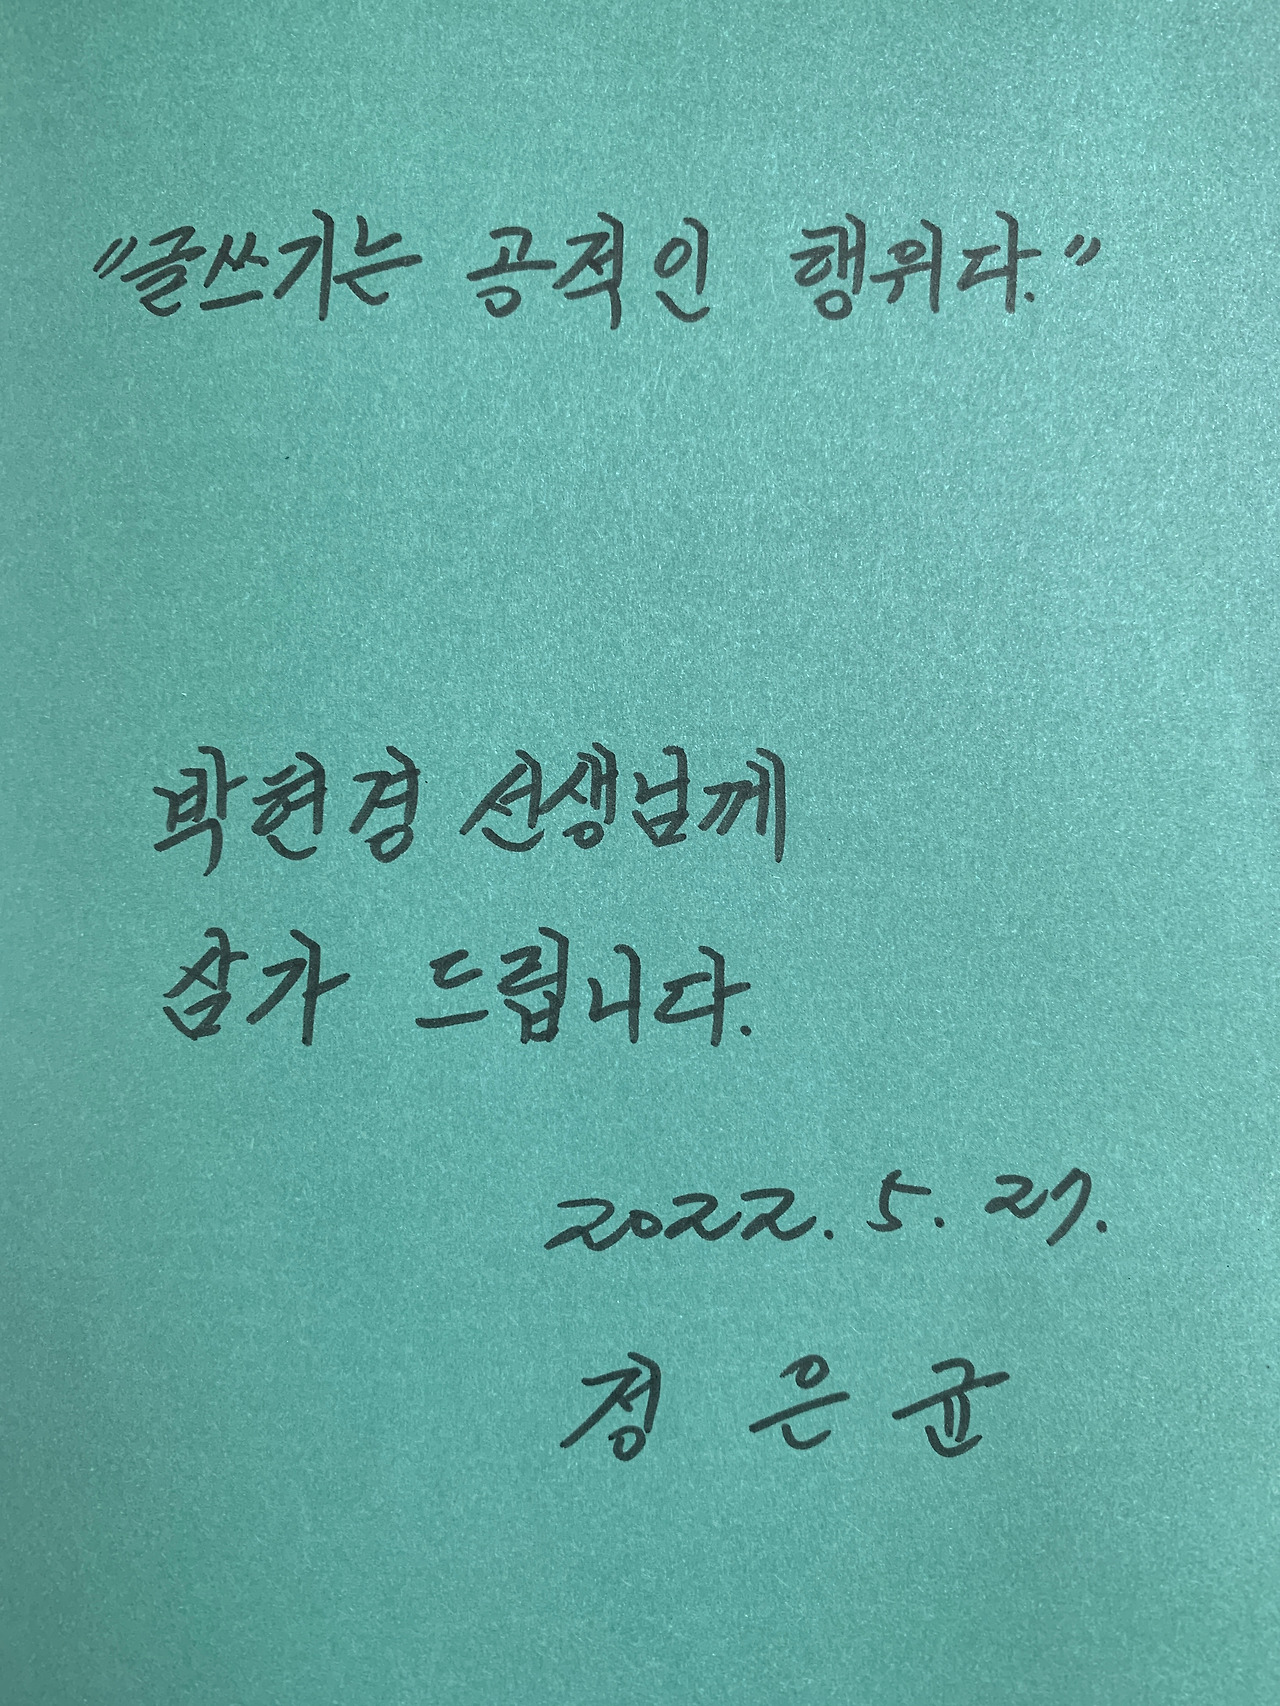 "글쓰기는 공적인 행위다."
박현경 선생님께
삼가 드립니다.
2022. 5. 27.
정 은 균